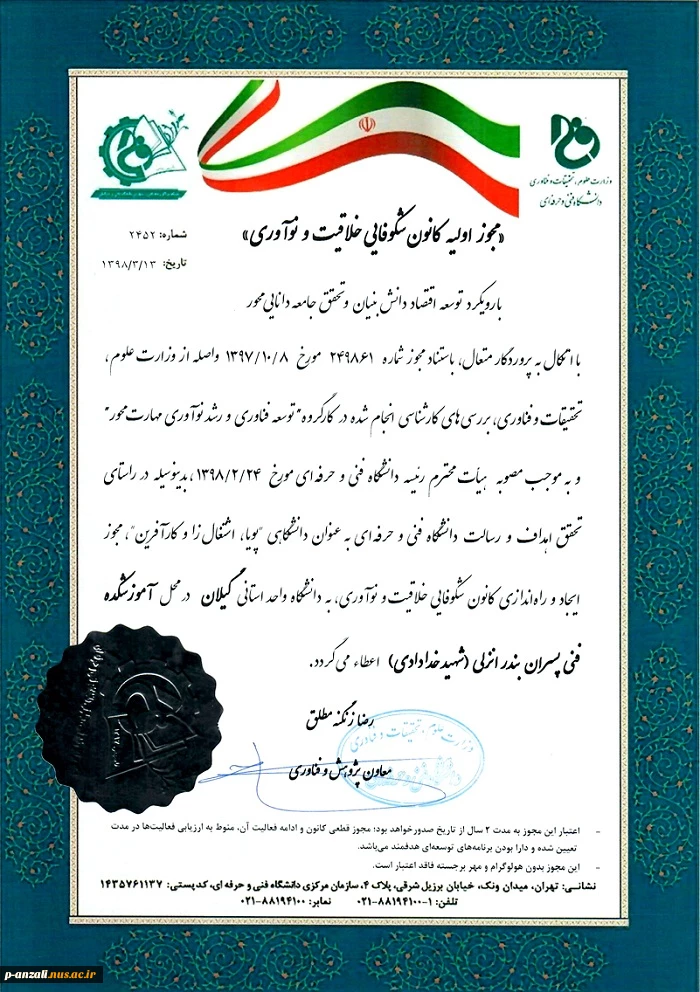 وزارت علوم، تحقیقات و فناوری
دانشگاه فنی و حرفه‌ای
«مجوز اولیه کانون شکوفایی خلاقیت و نوآوری»
شماره: ۲۴۵۲
تاریخ: ۱۳۹۸/۳/۱۳
با رویکرد توسعه اقتصاد دانش بنیان و تحقق جامعه دانایی محور
با اتکال به پروردگار متعال، باستناد مجوز شماره ۲۴۹۸۶۱ مورخ ۱۳۹۷/۱۰/۸ واصله از وزارت علوم،
تحقیقات و فناوری، بررسی های کارشناسی انجام شده در کارگروه "توسعه فناوری و رشد نوآوری مهارت محور"
و به موجب مصوبه هیأت محترم رئیسه دانشگاه فنی و حرفه ای مورخ ۱۳۹۸/۲/۲۴، بدینوسیله در راستای
تحقق اهداف و رسالت دانشگاه فنی و حرفه ای به عنوان دانشگاهی "پویا، اشتغال زا و کارآفرین"، مجوز
ایجاد و راه اندازی کانون شکوفایی خلاقیت و نوآوری، به دانشگاه واحد استانی گیلان در محل آموزشکده
فنی پسران بندر انزلی (شهید خدادادی) اعطاء می گردد.
رضا زنگنه مطلق
معاون پژوهش و فناوری
وزارت علوم، تحقیقات و فناوری
- اعتبار این مجوز به مدت ۲ سال از تاریخ صدور خواهد بود؛ مجوز قطعی کانون و ادامه فعالیت آن، منوط به ارزیابی فعالیت‌ها در مدت
تعیین شده و دارا بودن برنامه‌های توسعه‌ای هدفمند می‌باشد.
- این مجوز بدون هولوگرام و مهر برجسته فاقد اعتبار است.
نشانی: تهران، میدان ونک، خیابان برزیل شرقی، پلاک ۴، سازمان مرکزی دانشگاه فنی و حرفه ای، کدپستی: ۱۴۳۵۷۶۱۱۳۷
تلفن: ۱-۸۸۱۹۴۱۰۰-۰۲۱ نمابر: ۸۸۱۹۴۱۰۰-۰۲۱
p-anzali.nus.ac.ir